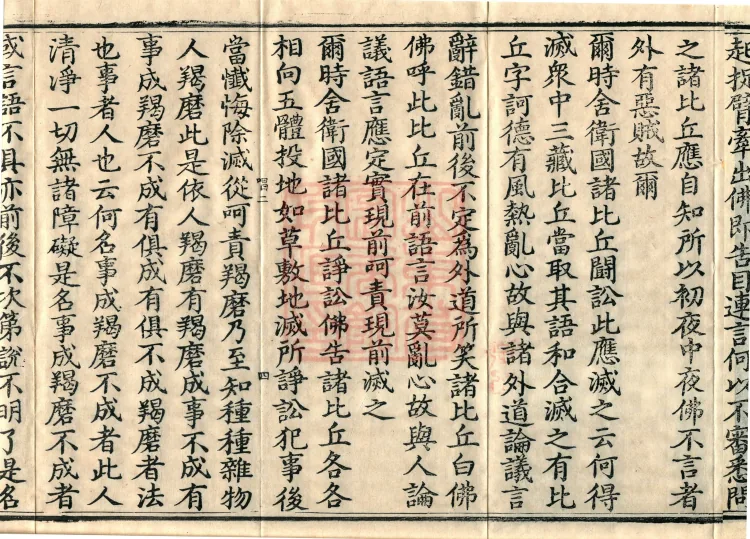 起投臂牽出佛即告目連言何以不審悉問
之諸比丘應自知所以初夜中夜佛不言者
外有惡賊故爾
爾時舍衛國諸比丘鬪訟此應滅之云何得
滅衆中三藏比丘當取其語和合滅之有比
丘字訶德有風熱亂心故與諸外道論議言
辭錯亂前後不定為外道所笑諸比丘白佛
佛呼此比丘在前語言汝莫亂心故與人論
議語言應定實現前呵責現前滅之
爾時舍衛國諸比丘諍訟佛告諸比丘各各
相向五體投地如草敷地滅所諍訟犯事後
二 四
當懺悔除滅從呵責羯磨乃至知種種雜物
人羯磨此是依人羯磨有羯磨成事不成有
事成羯磨不成有俱成有俱不成羯磨者法
也事者人也云何名事成羯磨不成者此人
清凈一切無諸障礙是名事成羯磨不成者
或言語不具亦前後不次第說不明了是名